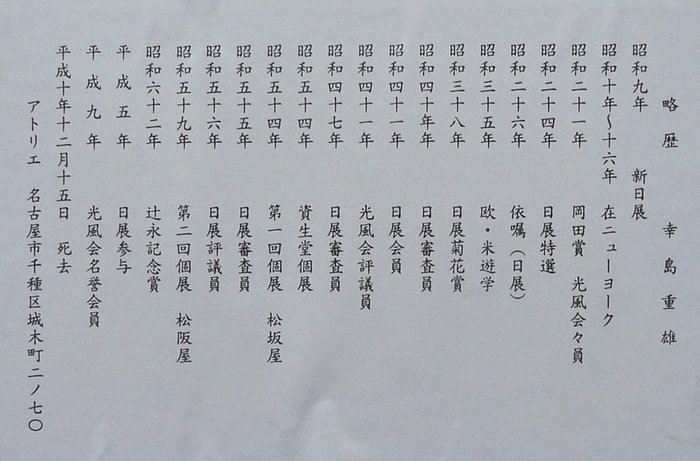 略歴　幸島重雄
昭和九年　新日展
昭和十年〜十六年　在ニューヨーク
昭和二十一年　岡田賞　光風会々員
昭和二十四年　日展特選
昭和二十六年　依嘱（日展）
昭和三十五年　欧・米遊学
昭和三十八年　日展菊花賞
昭和四十年　日展審査員
昭和四十一年　日展会員
昭和四十一年　光風会評議員
昭和四十七年　日展審査員
昭和五十四年　資生堂個展
昭和五十四年　第一回個展　松坂屋
昭和五十五年　日展審査員
昭和五十六年　日展評議員
昭和五十九年　第二回個展　松阪屋
昭和六十二年　辻永記念賞
平成五年　日展参与
平成九年　光風会名誉会員
平成十年十二月十五日　死去
アトリエ　名古屋市千種区城木町二ノ七〇